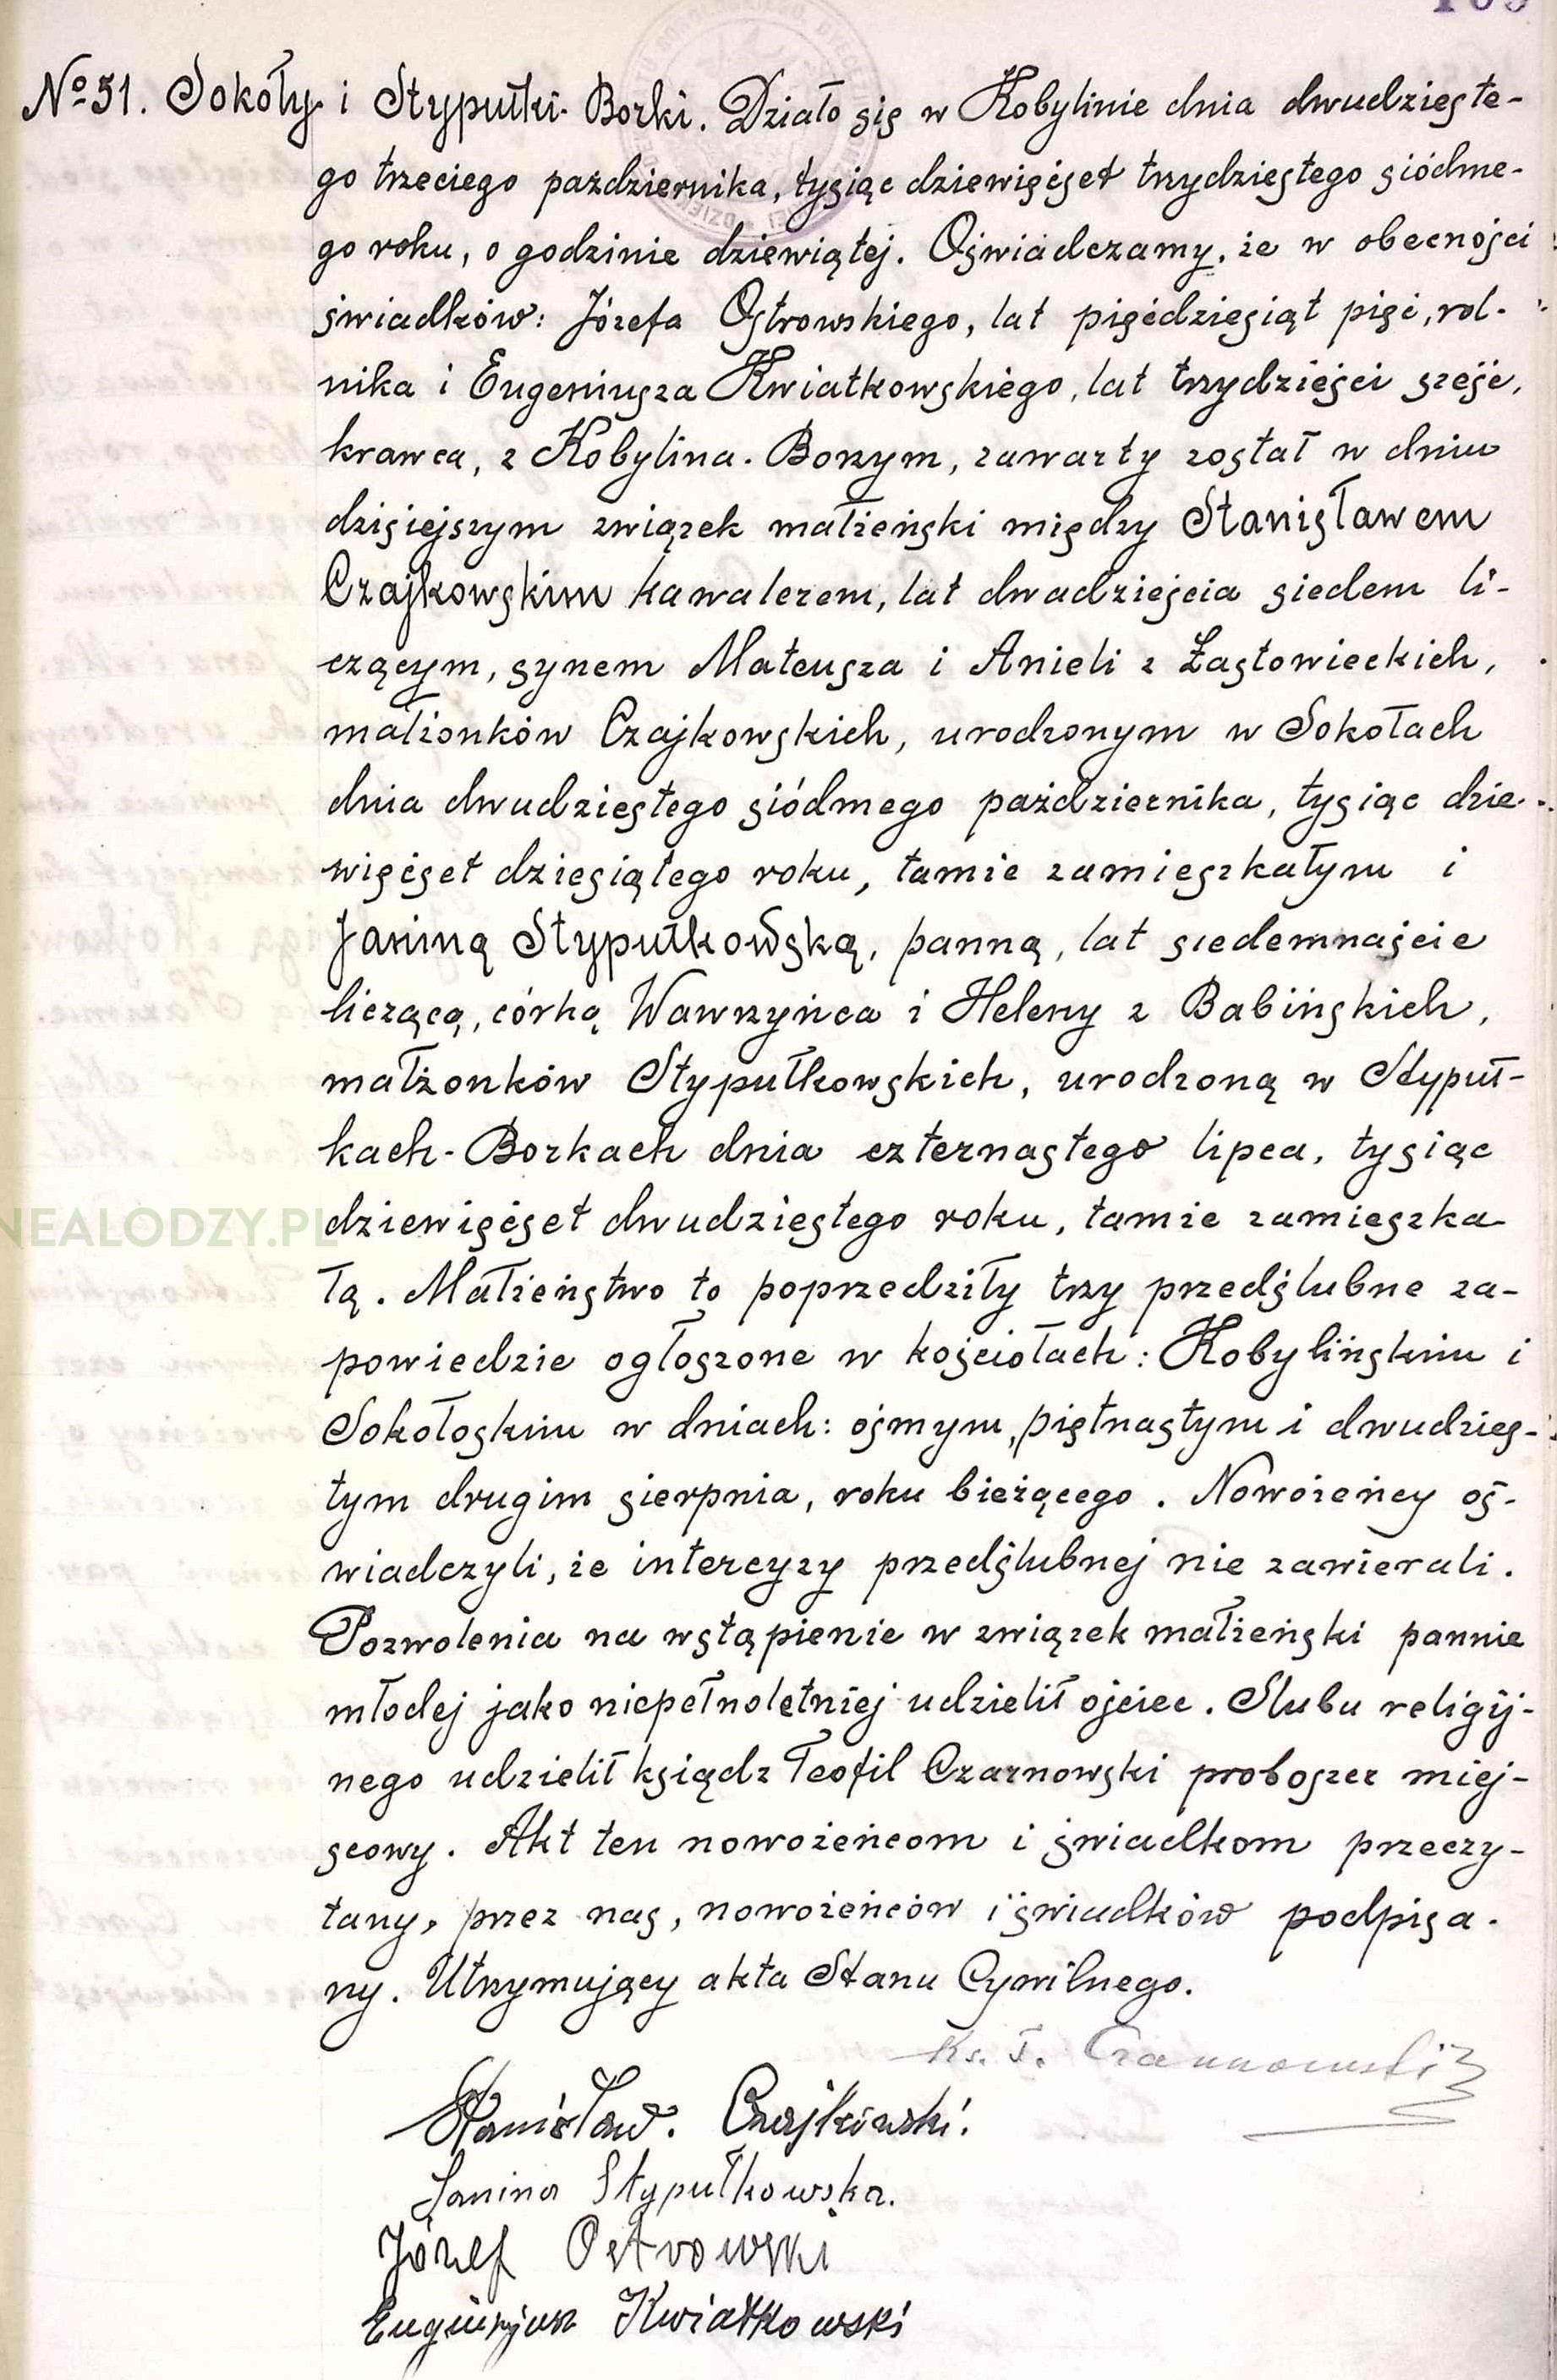 № 51. Sokoły i Stypułki-Borki. Działo się w Kobylinie dnia dwudzieste-
go trzeciego października, tysiąc dziewięćset trzydziestego siódme-
go roku, o godzinie dziewiątej. Oświadczamy, że w obecności
świadków: Józefa Ostrowskiego, lat pięćdziesiąt pięć, rol-
nika i Eugeniusza Kwiatkowskiego, lat trzydzieści sześć,
krawca, z Kobylina-Borzym, zawarty został w dniu
dzisiejszym związek małżeński między Stanisławem
Czajkowskim kawalerem, lat dwadzieścia siedem li-
czącym, synem Mateusza i Anieli z Zastowieckich,
małżonków Czajkowskich, urodzonym w Sokołach
dnia dwudziestego siódmego października, tysiąc dzie-
więćset dziesiątego roku, tamże zamieszkałym i
Janiną Stypułkowską, panną, lat siedemnaście
liczącą, córką Wawrzyńca i Heleny z Babińskich,
małżonków Stypułkowskich, urodzoną w Stypuł-
kach-Borkach dnia czternastego lipca, tysiąc
dziewięćset dwudziestego roku, tamże zamieszka-
NEALODZY.PL
łą. Małżeństwo to poprzedziły trzy przedślubne za-
powiedzie ogłoszone w kościołach: Kobylińskim i
Sokołoskim w dniach: ósmym, piętnastym i dwudzies-
tym drugim sierpnia, roku bieżącego. Nowożeńcy oś-
wiadczyli, że intercyzy przedślubnej nie zawierali.
Pozwolenia na wstąpienie w związek małżeński pannie
młodej jako niepełnoletniej udzielił ojciec. Slubu religij-
nego udzielił ksiądz Teofil Czarnowski proboszcz miej-
scowy. Akt ten nowożeńcom i świadkom przeczy-
tany, przez nas, nowożeńców i świadków podpisa-
ny. Utrzymujący akta Stanu Cywilnego.
Ks. T. Czarnowski
Stanisław. Czajkowski.
Janina Stypułkowska.
Józef Ostrowski
Eugieniusz Kwiatkowski